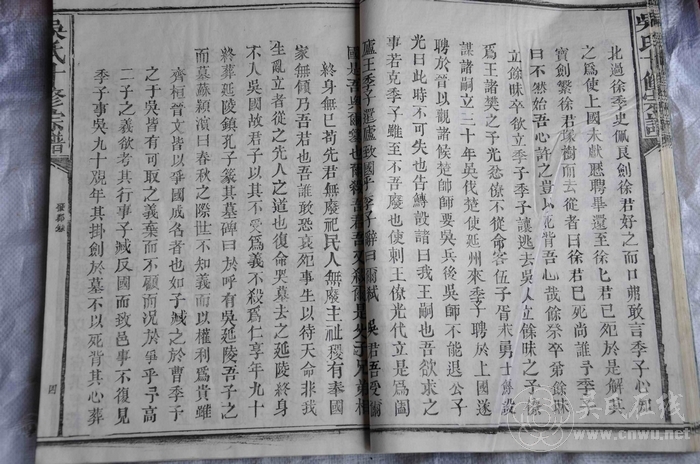 吳氏十修宗譜
北過徐季史佩良劍徐君好之而口弗敢言季子心
之為使上國未獻聘畢還至徐徐君已歿於是解其
寶劍繫徐君塚樹而去從者曰徐君已死尚誰予季子
曰不然始吾心許之豈以死背吾心哉餘祭卒弟餘眛
立餘眛卒欲立季子季子讓逃去吳人立餘眛之子僚
為王諸樊之子光怨僚不從命客伍子胥求勇士鱄設
諸謀嗣立三十年吳伐楚使延州來季子聘於上國遂
聘於晉以觀諸候楚師師要吳兵後吳師不能退公子
光曰此時不可失也告鱄設諸曰我王嗣也吾欲求之
事若克季子雖至不吾廢也使刺王僚光代立是為闔
廬王季子還廬致國乎季子辭曰爾弒吳君吾受爾
國是吾與爾篡也爾殺吾君吾又殺爾是父子兄弟相
終身無已苟先君無廢祀民人無廢主社稷有奉國
家無傾乃吾君也吾誰敢怨哀死事生以待天命非我
生亂立者從之先人之道也復命哭墓去之延陵終身
不入吳國故君子以其不受為義不殺為仁享年九十
終葬延陵鎮孔子篆其墓碑曰於呼有吳延陵吾子之
而墓蘇潁濱曰春秋之際世不知義而以權利為貴雖
齊桓晉文皆以爭國成名者也如子臧之於曹季子
之于吳皆有可取之義棄而不顧而況於爭乎予高
二子之義欲考其行事子臧反國而致邑事不復見
季子事吳九十覩年其掛劍於墓不以死背其心葬
四
吳氏十修宗譜
吴氏在线
www.cnwu.net